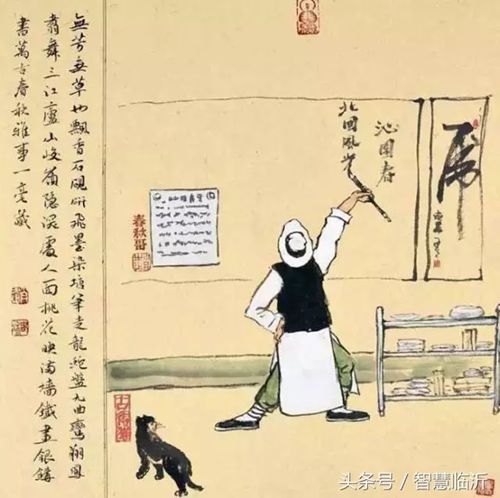 虎
沁園春
北國風光
春秋哥
無芳無草也飄香石硯研飛墨染塘筆走龍蛇盤九曲鸞翔鳳
翥舞三江廬山峻嶺隱深處人面桃花映滿墻鐵畫銀鉤
書萬古春秋雅事一毫藏
头条号 / 智慧临沂